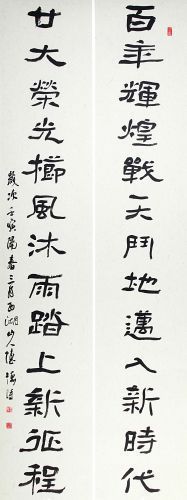 百年輝煌戰天鬥地邁入新時代
廿大榮光櫛風沐雨踏上新征程
歲次壬寅陽春三月西湖